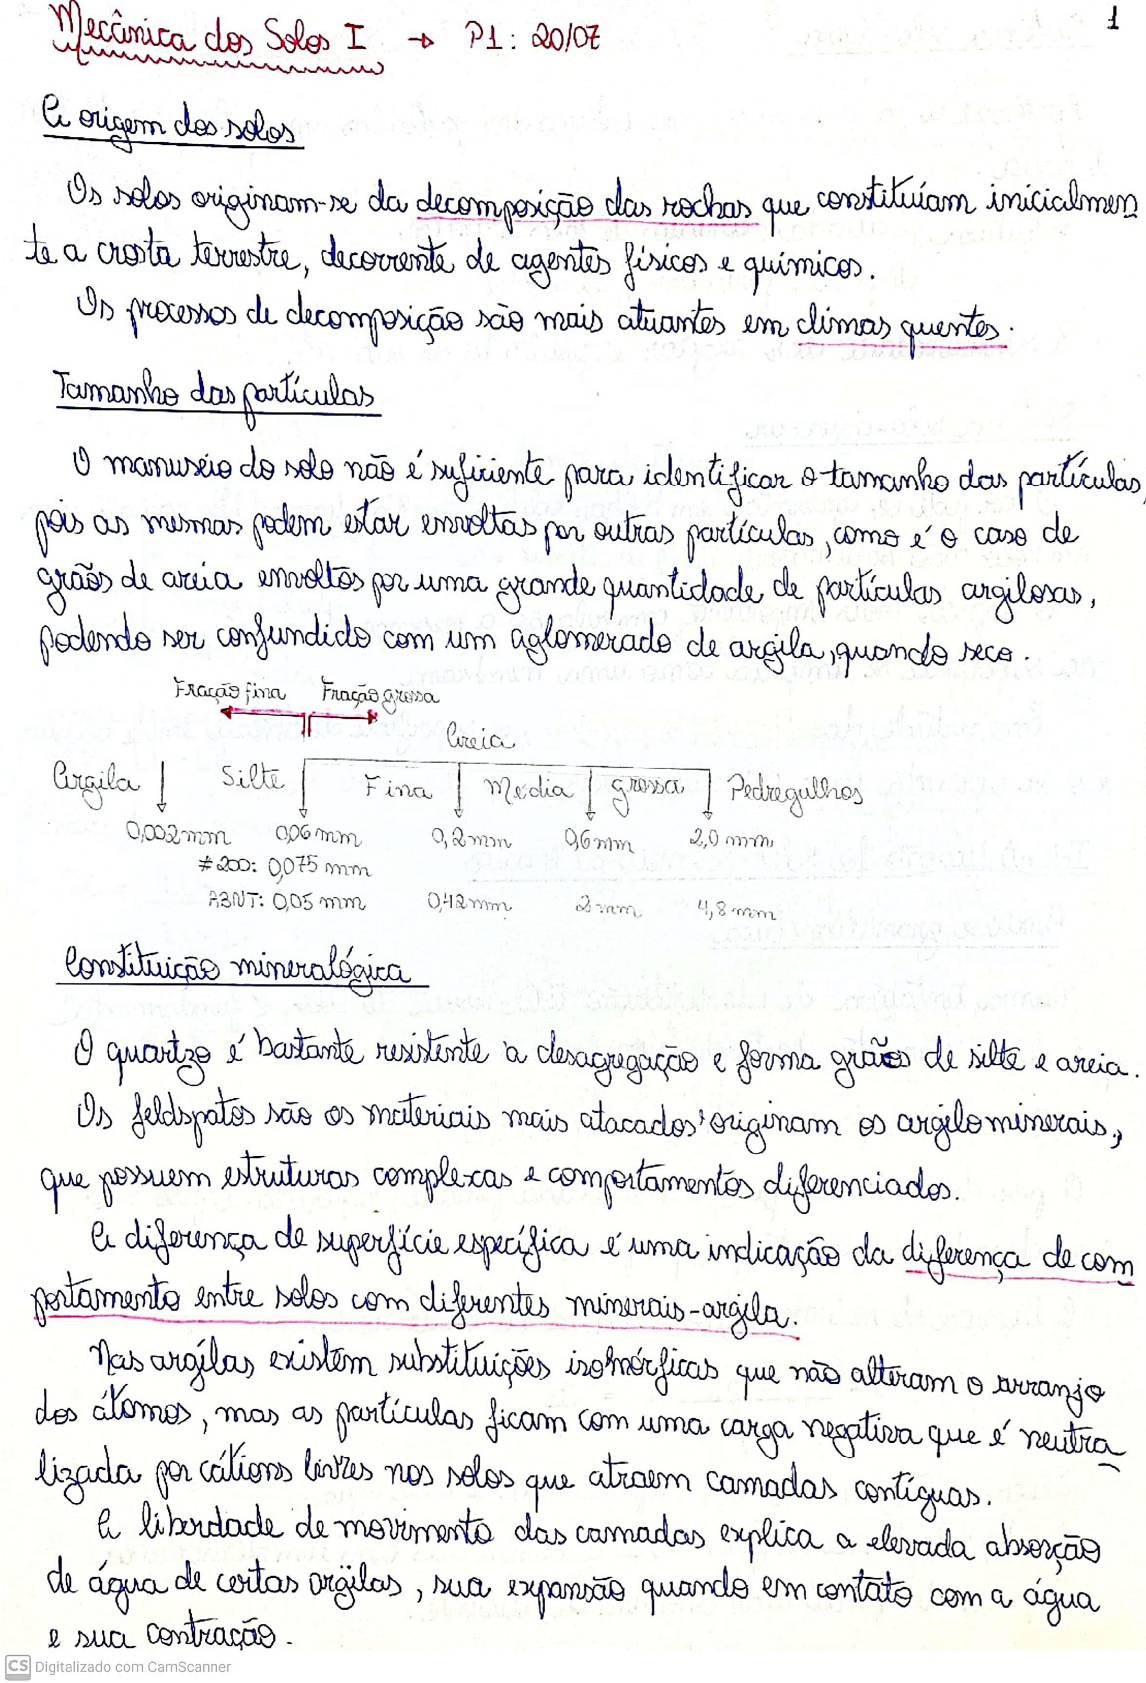 1
Mecânica dos Solos I → P1: 20/07
A origem dos solos
Os solos originam-se da decomposição das rochas que constituíam inicialmen
te a crosta terrestre, decorrente de agentes físicos e químicos.
Os processos de decomposição são mais atuantes em climas quentes.
Tamanho das partículas
O manuseio do solo não é suficiente para identificar o tamanho das partículas,
pois as mesmas podem estar envoltas por outras partículas, como é o caso de
grãos de areia envoltos por uma grande quantidade de partículas argilosas,
podendo ser confundido com um aglomerado de argila, quando seco.
Fração fina Fração grossa
Areia
Argila Silte Fina Média grossa Pedregulhos
0,002mm 0,06mm 0,2mm 0,6mm 2,0 mm
#200: 0,075 mm
ABNT: 0,05 mm 0,42mm 2mm 4,8 mm
Constituição mineralógica
O quartzo é bastante resistente à desagregação e forma grãos de silte e areia.
Os feldspatos são os materiais mais atacados, originam os argilominerais,
que possuem estruturas complexas e comportamentos diferenciados.
A diferença de superfície específica é uma indicação da diferença de com
portamento entre solos com diferentes minerais-argila.
Nas argilas existem substituições isomórficas que não alteram o arranjo
dos átomos, mas as partículas ficam com uma carga negativa que é neutra
lizada por cátions livres nos solos que atraem camadas contíguas.
A liberdade de movimento das camadas explica a elevada absorção
de água de certas argilas, sua expansão quando em contato com a água
e sua contração.
CS Digitalizado com CamScanner